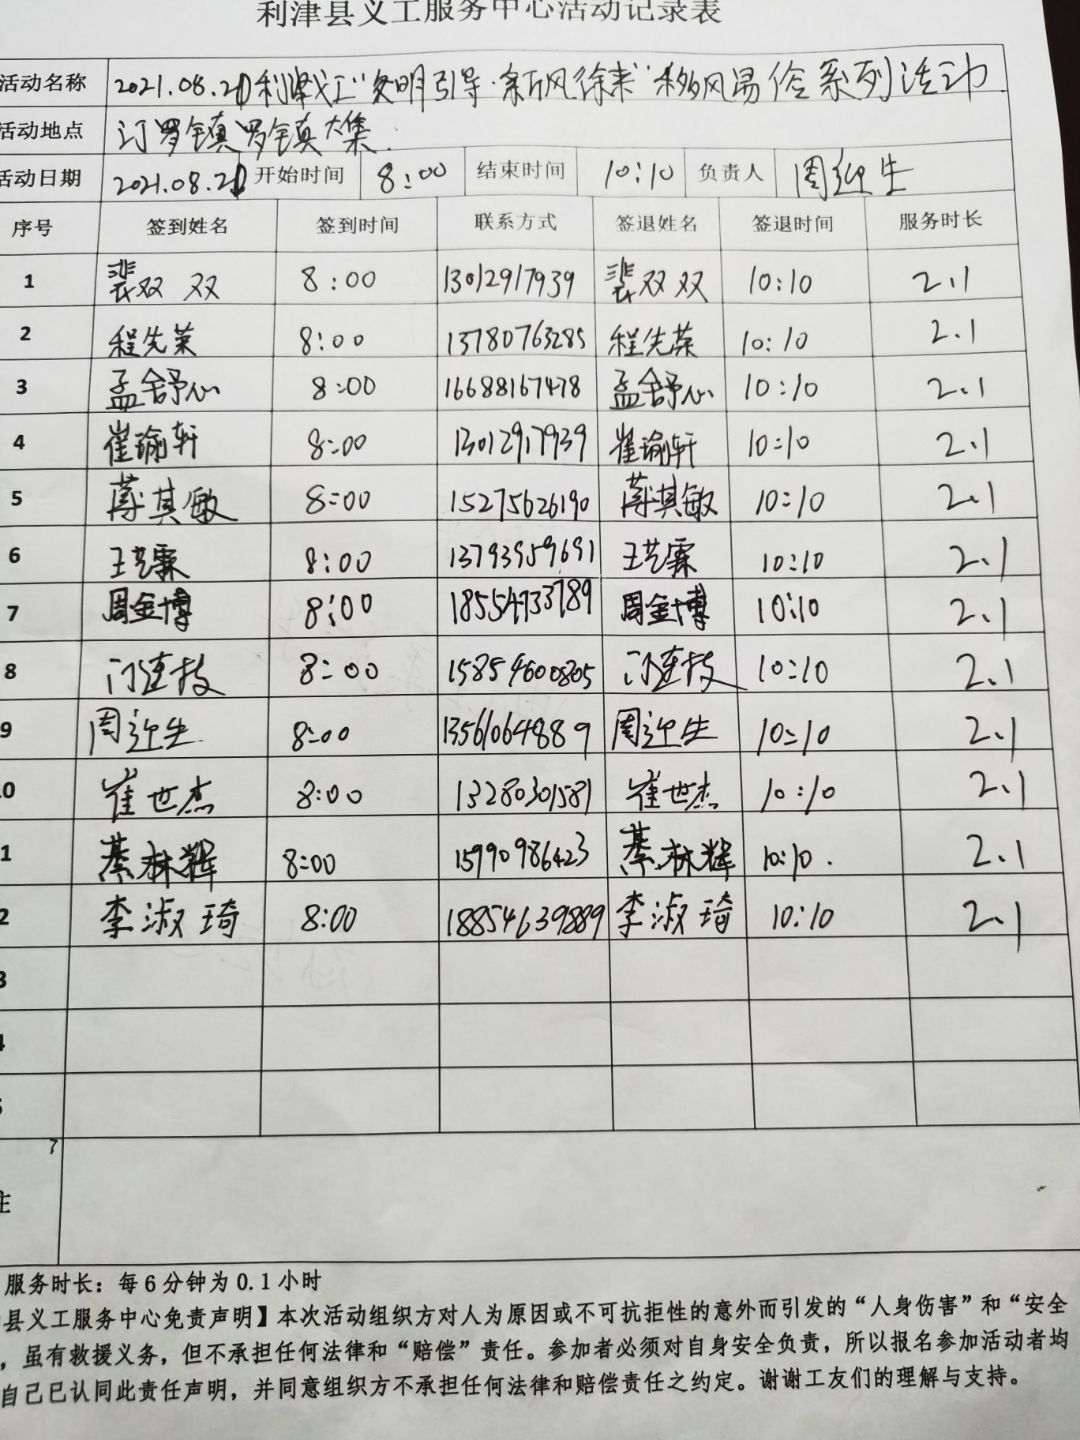 利津县义工服务中心活动记录表
活动名称 2021.08.21利津义工"文明引导·新风徐来"移风易俗系列活动
活动地点 汀罗镇罗镇大集
活动日期 2021.08.21 开始时间 8:00 结束时间 10:10 负责人 周迎生
序号 签到姓名 签到时间 联系方式 签退姓名 签退时间 服务时长
1 裴双双 8:00 13012917939 裴双双 10:10 2.1
2 程先荣 8:00 13780763285 程先荣 10:10 2.1
3 孟舒心 8:00 16688167478 孟舒心 10:10 2.1
4 崔瑜轩 8:00 13012917939 崔瑜轩 10:10 2.1
5 蒋其敏 8:00 15275626190 蒋其敏 10:10 2.1
6 王艺霖 8:00 13793959691 王艺霖 10:10 2.1
7 周金博 8:00 18554733789 周金博 10:10 2.1
8 门连技 8:00 15854600805 门连技 10:10 2.1
9 周迎生 8:00 13561064889 周迎生 10:10 2.1
0 崔世杰 8:00 13280301581 崔世杰 10:10 2.1
1 綦林辉 8:00 15990986423 綦林辉 10:10. 2.1
2 李淑琦 8:00 18854639889 李淑琦 10:10 2.1
3
4
5
注
服务时长：每6分钟为0.1小时
县义工服务中心免责声明】本次活动组织方对人为原因或不可抗拒性的意外而引发的“人身伤害”和“安全
，虽有救援义务，但不承担任何法律和“赔偿”责任。参加者必须对自身安全负责，所以报名参加活动者均
自己已认同此责任声明，并同意组织方不承担任何法律和赔偿责任之约定。谢谢工友们的理解与支持。